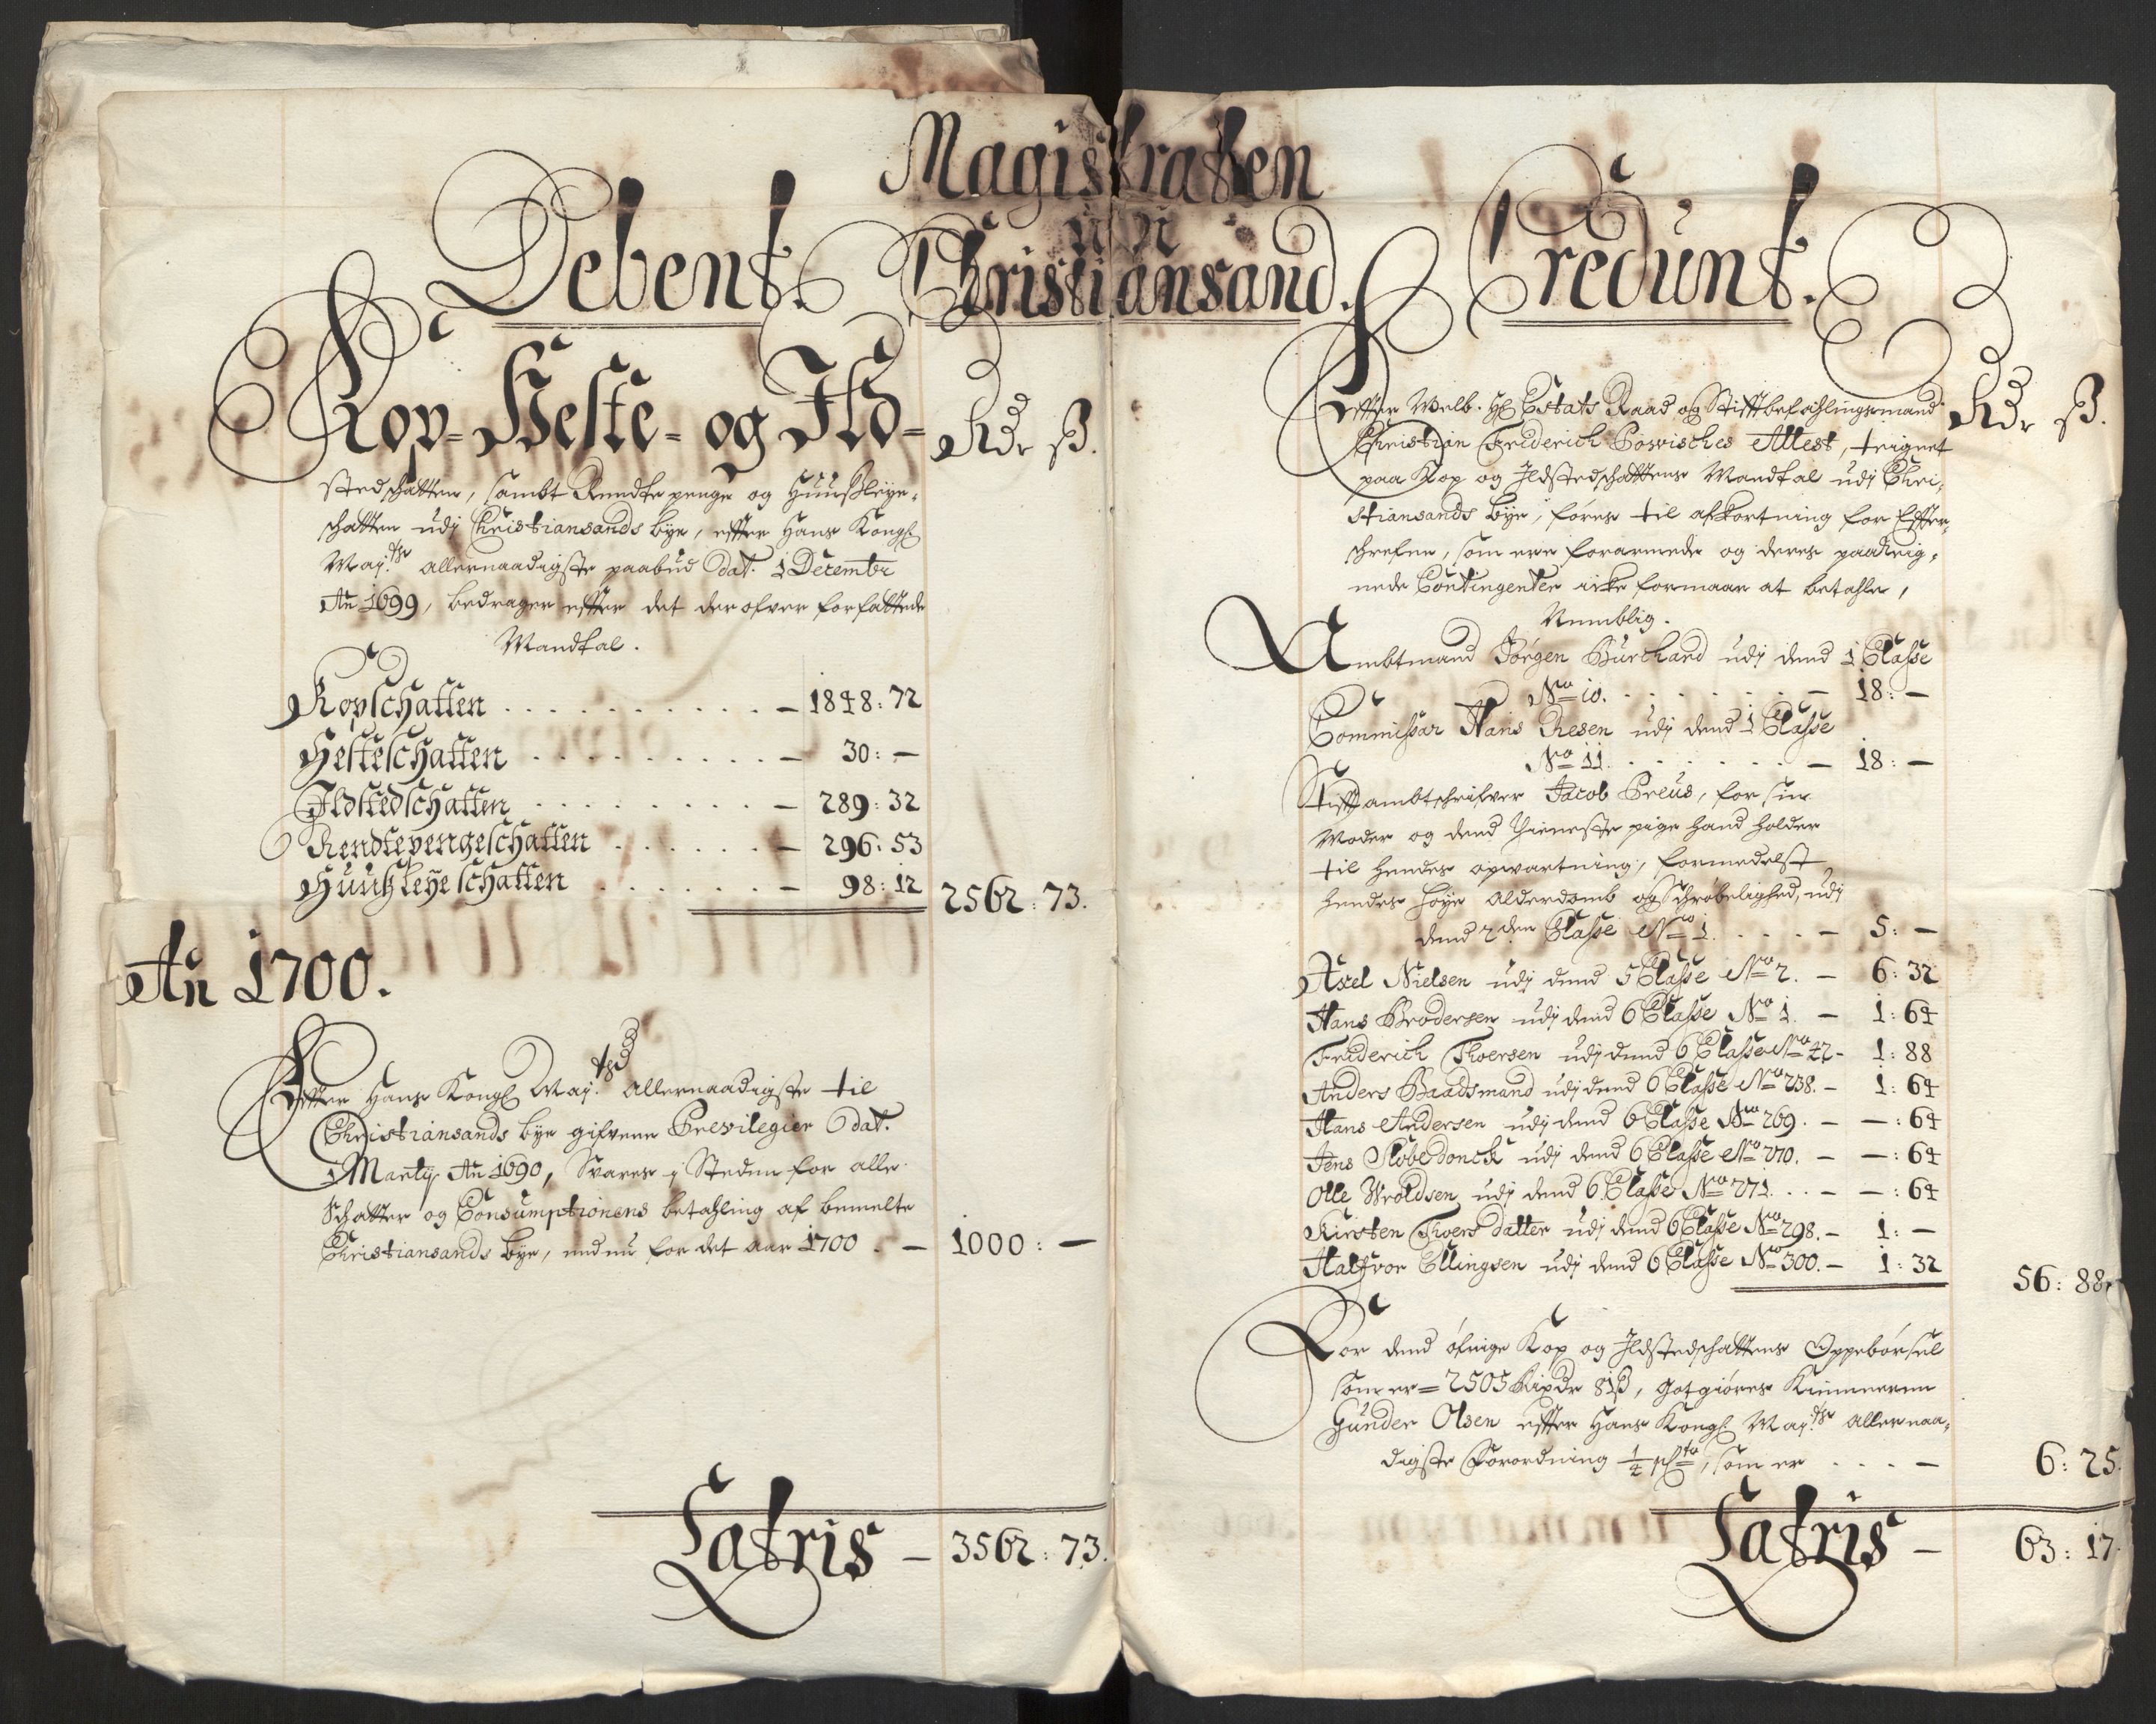 Magistraten
udi
Christiansand.
Debent.
Kop-Heste- og Ild-
Rdr ß.
stedschatten, sambt Rendte penge og Huußleye-
schatten udj Christiansands bye, effter Hans Kongl
Maj.ts allernaadigste paabud dat. 1 Decembr
An 1699, bedrager effter det derofver forfattede
Mandtal.
Kopschatten . . . . . . . . . . – 1848: 72
Hesteschatten . . . . . . . . . – 30: –
Ildstedschatten . . . . . . . . – 289: 32
Rendtepengeschatten . . . . . . – 296: 53
Huußleyeschatten . . . . . . – 98: 12
2562: 73.
An 1700.
Effter Hans Kongl Maj.ts allernaadigste til
Christiansands bye gifvene Previlegier dat.
1 Martij An 1690, Svares j Steden for alle
Schatter og Consumptionens betahling af bemelte
Christiansands bye, nu for det aar 1700 . – 1000: –
Latris – 3562: 73.
Credunt.
Rdr ß.
Effter Welb. Hr Estats Raad og Stifftbefahlingsmand
Christian Friderich Powisches Attest, teignet
paa Kop og Ildstedschattens Mandtal udj Chri-
stiansands bye, føres til afkortning for Effter-
schrefne, som ere forarmede og deres paareig-
nede Contingenter icke formaar at betahle,
Nemblig.
Ambtmand Jørgen Burchard udj dend 1 Classe
No 10. . . . . . . – 18: –
Commissar Hans Resen udj dend 1 Classe
No 11. . . . . . . – 18: –
Stifftambtschrifver Jacob Preus, for sin
Moder og dend thieneste pige hand holder
til hendes opwartning, formedelst
hendes høye Alderdomb og Schrøbelighed, udj
dend 2den Classe No 1. . . . – 5: –
Axel Nielsen udj dend 5 Classe No 2. – 6: 32
Hans Brodersen udj dend 6 Classe No 1. – 1: 64
Friderich Thoersen udj dend 6 Classe No 42- 1: 88
Anders Baadsmand udj dend 6 Classe No 238. – 1: 64
Hans Andersen udj dend 6 Classe No 269. – –: 64
Jens Slobedonck udj dend 6 Classe No 270. – –: 64
Olle Wroldsen udj dend 6 Classe No 271. . . – –: 64
Kirsten Thoers datter udj dend 6 Classe No 298. – 1: –
Halfvor Ellingsen udj dend 6 Classe No 300. – 1: 32
56: 88
For dend øfrige Kop og Ildstedschattens Oppebørsel
som er = 2505 Rixdr 81ß, gotgiøres Kiemneren
Gunder Olsen effter Hans Kongl Maj.ts allernaa-
digste Forordning 1/4 pCto, som er . . . . – 6: 25.
Latris – 63: 17.